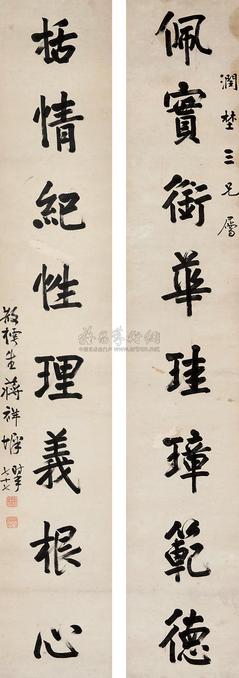 潤埜三兄屬
佩實銜華珪璋範德
括情紀性理義根心
散樗生蔣祥墀
時年七十七